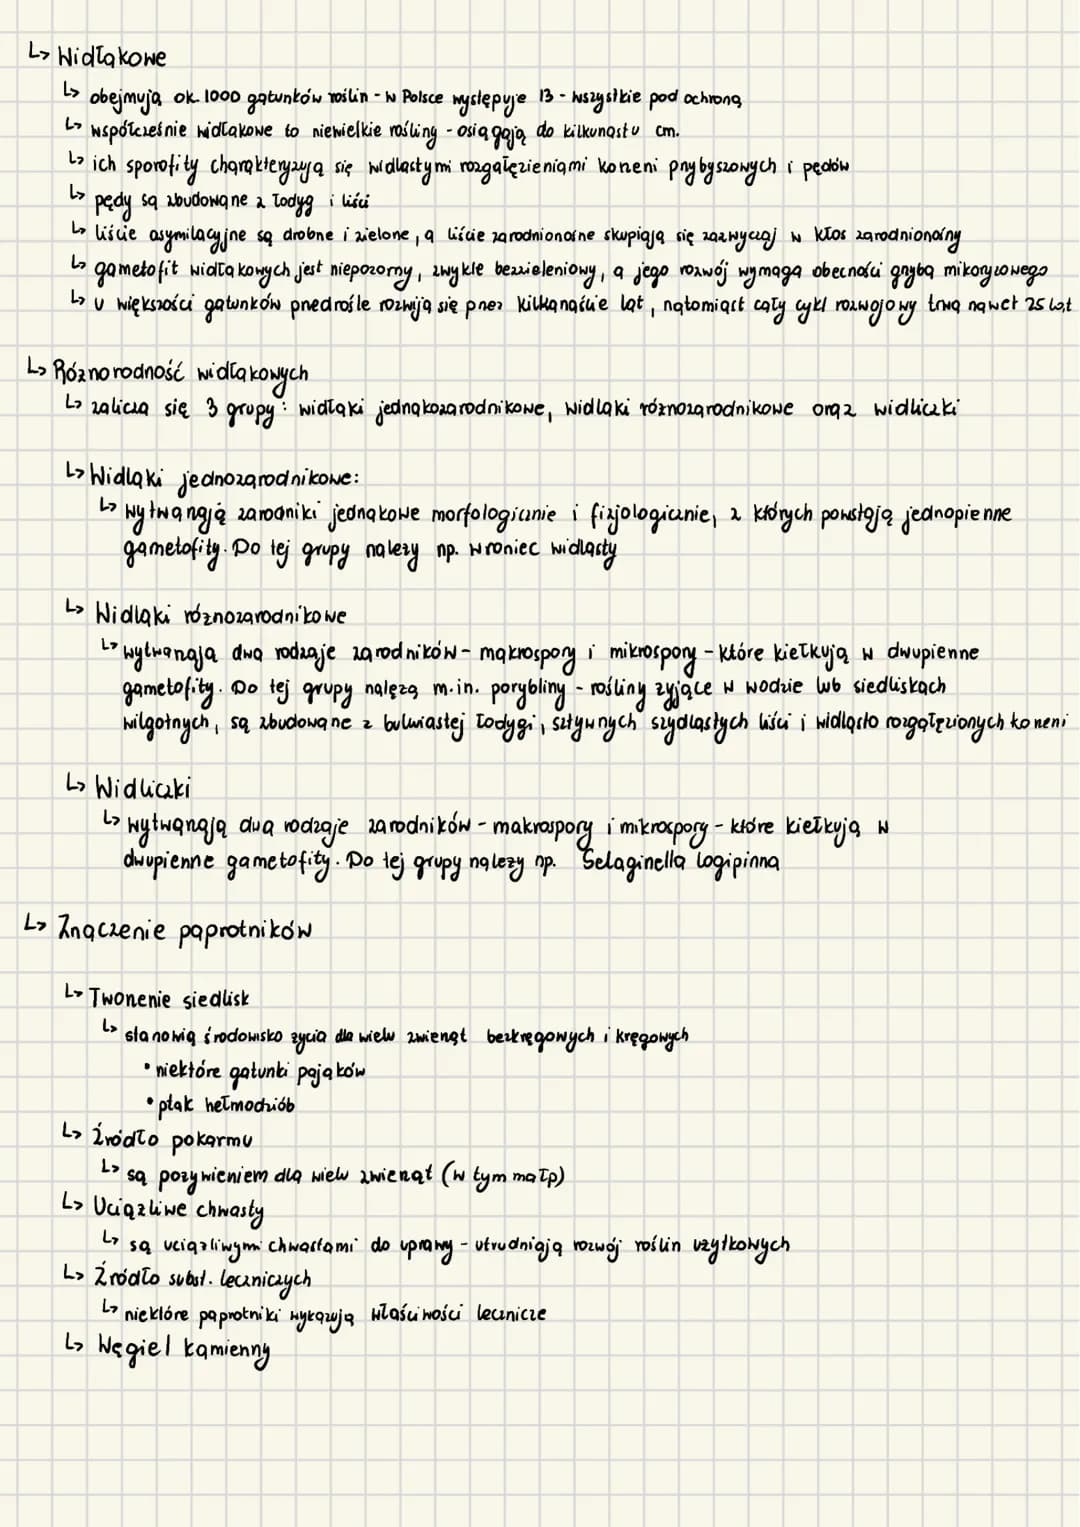 ↳ Widłakowe
↳ obejmują ok. 1000 gatunków roślin - w Polsce występuje 13 - wszystkie pod ochroną
↳ współcześnie widłakowe to niewielkie rośliny - osiągają do kilkunastu cm.
↳ ich sporofity charakteryzują się widlastymi rozgałęzieniami korzeni przybyszowych i pędów
↳ pędy są zbudowane z łodyg i liści
↳ liście asymilacyjne są drobne i zielone, a liście zarodnionośne skupiają się zazwyczaj w kłos zarodnionośny
↳ gametofit widłakowych jest niepozorny, zwykle bezzieleniowy, a jego rozwój wymaga obecności grzyba mikoryzowego
↳ u większości gatunków przedrośle rozwija się przez kilkanaście lat, natomiast cały cykl rozwojowy trwa nawet 25 lat
↳ Różnorodność widłakowych
↳ zalicza się 3 grupy: widłaki jednakozarodnikowe, widłaki różnozarodnikowe oraz widliczki
↳ Widłaki jednozarodnikowe:
↳ wytwarzają zarodniki jednakowe morfologicznie i fizjologicznie, z których powstają jednopienne
gametofity. Do tej grupy należy np. wroniec widlasty
↳ Widłaki różnozarodnikowe
↳ wytwarzają dwa rodzaje zarodników - makrospory i mikrospory - które kiełkują w dwupienne
gametofity. Do tej grupy należą m.in. porybliny - rośliny żyjące w wodzie lub siedliskach
wilgotnych, są zbudowane z bulwiastej łodygi, sztywnych szydlastych liści i widlasto rozgałęzionych korzeni
↳ Widliczki
↳ wytwarzają dwa rodzaje zarodników - makrospory i mikrospory - które kiełkują w
dwupienne gametofity. Do tej grupy należy np. Selaginella logipinna
↳ Znaczenie paprotników
↳ Tworzenie siedlisk
↳ stanowią środowisko życia dla wielu zwierząt bezkręgowych i kręgowych
• niektóre gatunki pająków
• ptak hełmodziób
↳ Źródło pokarmu
↳ są pożywieniem dla wielu zwierząt (w tym małp)
↳ Uciążliwe chwasty
↳ są uciążliwymi chwastami do uprawy - utrudniają rozwój roślin użytkowych
↳ Źródło subst. leczniczych
↳ niektóre paprotniki wykazują właściwości lecznicze
↳ Węgiel kamienny